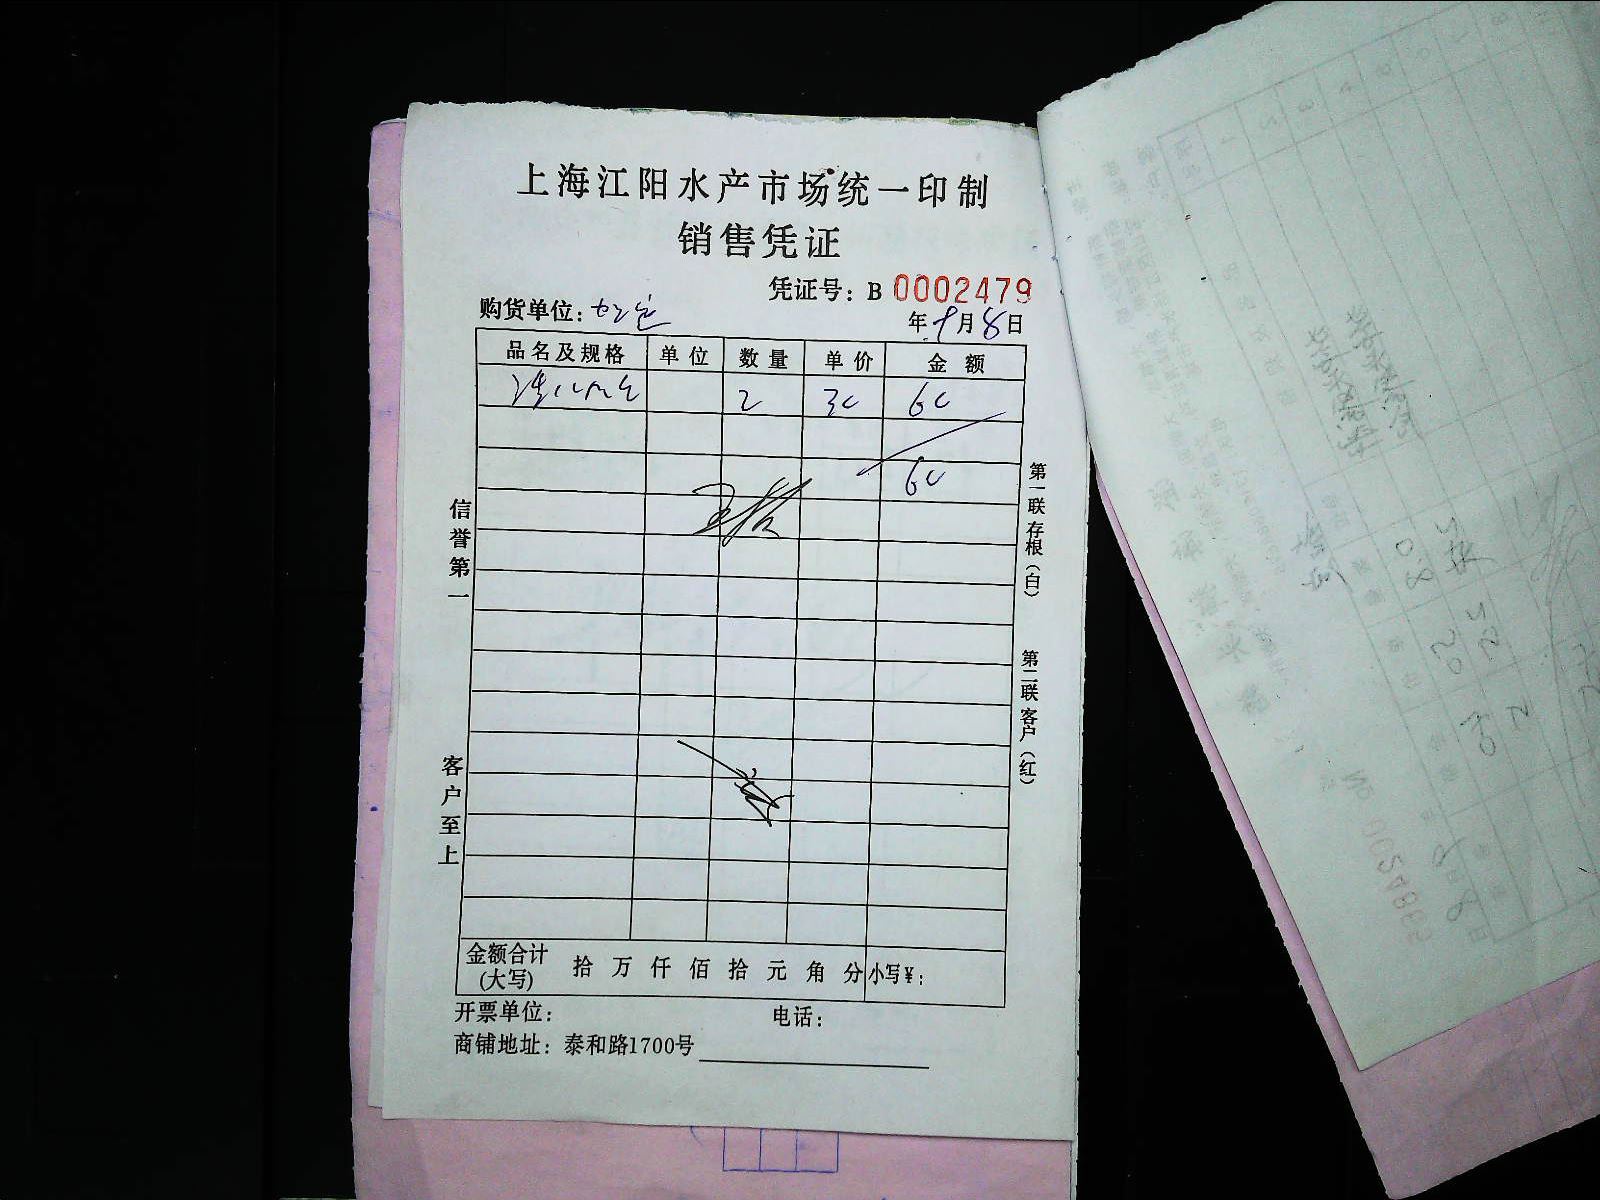 上海江阳水产市场统一印制
销售凭证
凭证号：B 0002479
购货单位：
年 9月8日
品名及规格 单位 数量 单价 金额
2 30 60
60
信誉第一
客户至上
第一联存根（白）
第二联客户（红）
金额合计（大写） 拾 万 仟 佰 拾 元 角 分 小写¥：
开票单位： 电话：
商铺地址：泰和路1700号